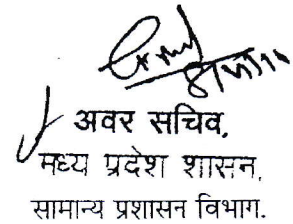 अवर सचिव,
मध्य प्रदेश शासन,
सामान्य प्रशासन विभाग.